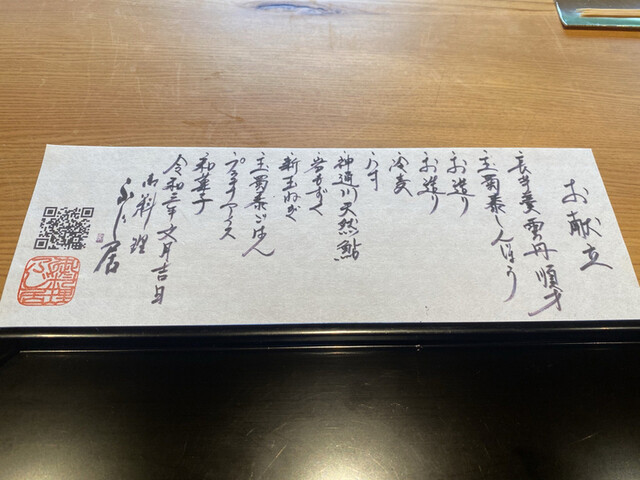 お献立
長芋羹 雲丹 順才
玉蜀黍しんじょう
お造り
お造り
冷麦
八寸
神通川天然鮎
岩もずく
新玉ねぎ
玉蜀黍ごはん
和菓子
令和三年文月吉日
御料理
ふじ居